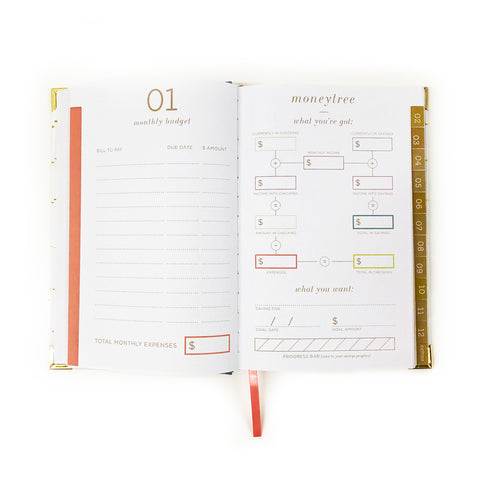 01
monthly budget
BILL TO PAY DUE DATE $ AMOUNT
TOTAL MONTHLY EXPENSES $
moneytree
what you've got:
CURRENTLY IN CHECKING CURRENTLY IN SAVINGS
$ $
MONTHLY INCOME
+ $ +
$ $
INCOME INTO CHECKING INCOME INTO SAVINGS
= =
$ $
AMOUNT IN CHECKING TOTAL IN SAVINGS
−
$ = $
EXPENSES TOTAL IN CHECKING
what you want:
SAVING FOR:
/ / $
GOAL DATE GOAL AMOUNT
PROGRESS BAR (color in your savings progress)
02
03
04
05
06
07
08
09
10
11
12